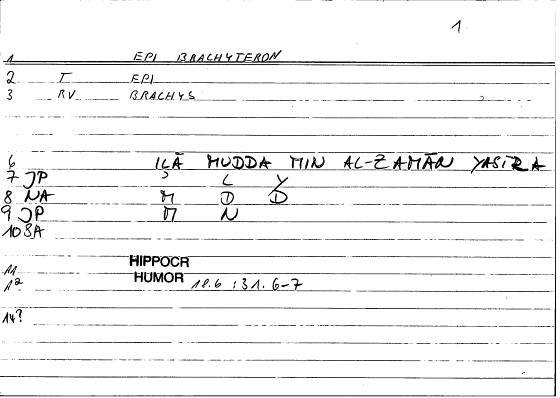 1
1 EPI BRACHYTERON
2 T EPI
3 RV BRACHYS
6 ILĀ MUDDA MIN AL-ZAMĀN YASĪRA
7 JP ʾ L Y
8 NA M D D
9 JP M N
10 BA
HIPPOCR
11
12 HUMOR 18.6 : 31.6-7
14?